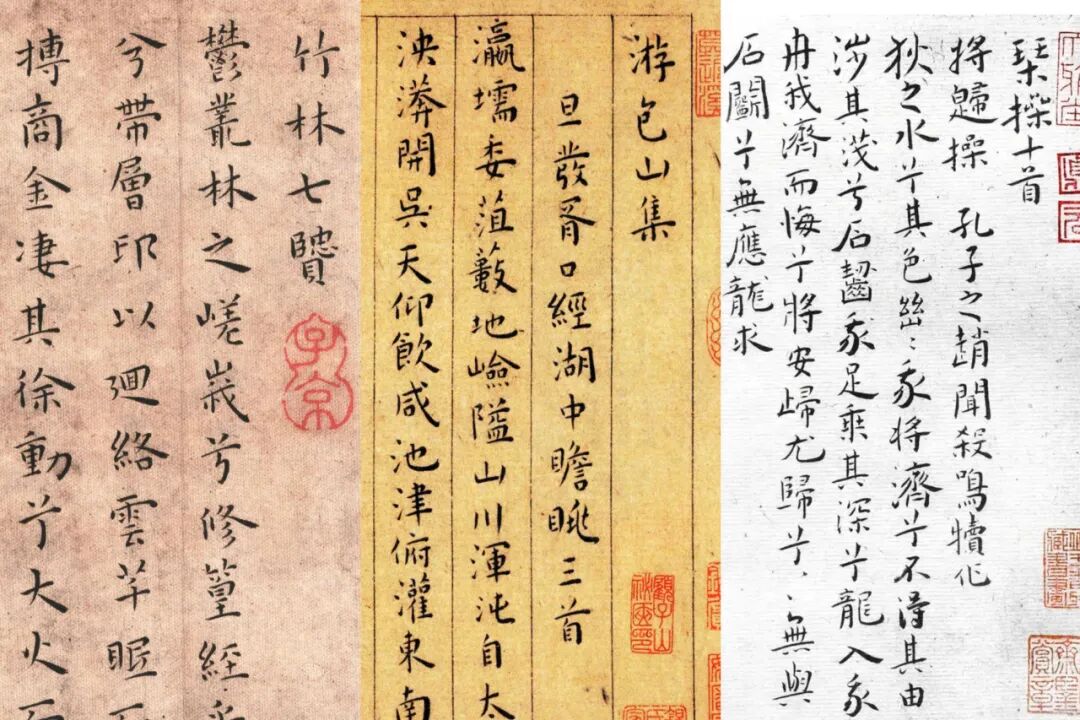 琹操十首
將歸操 孔子之趙聞殺鳴犢作
狄之水兮其色幽〻我將濟兮不得其由
涉其淺兮石齧我足乘其深兮龍入我
舟我濟而悔兮將安歸尤歸兮〻〻無與
石鬭兮無應龍求
游包山集
旦發胥口經湖中瞻眺三首
瀛壖委菹藪地嶮隘山川渾沌自太
泱漭開吳天仰飲咸池津俯灌東南
竹林七贒
子京
鬱叢林之嵯峩兮修篁經
兮帶層邱以迴絡雲芊眠
摶商金凄其徐動兮大火